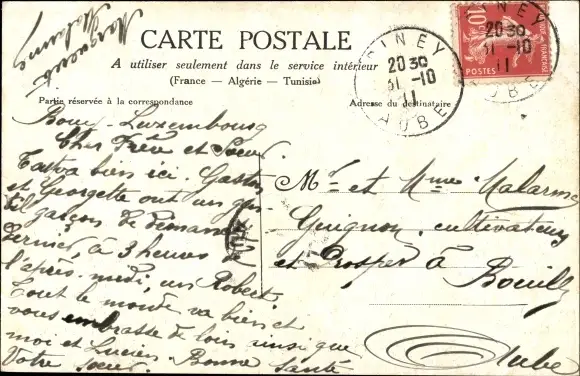 Marguerite
Malarme
CARTE POSTALE
A utiliser seulement dans le service intérieur
(France — Algérie — Tunisie)
Partie réservée à la correspondance
Adresse du destinataire
PINEY
20 30
31 -10
11
AUBE
PINEY
20 30
31 -10
11
AUBE
10
POSTES
Bouy-Luxembourg
Cher Frère et Soeur
Tout va bien ici. Gaston
et Georgette ont un gros
garçon de dimanche
dernier, à 3 heures
l'après midi, un Robert.
Tout le monde va bien et
vous embrasse de loin ainsi que
moi et Lucien. Bonne Santé
Votre soeur.
Mr et Mme Malarme
Guignon, cultivateurs
et Prosper à Bouilly
Aube